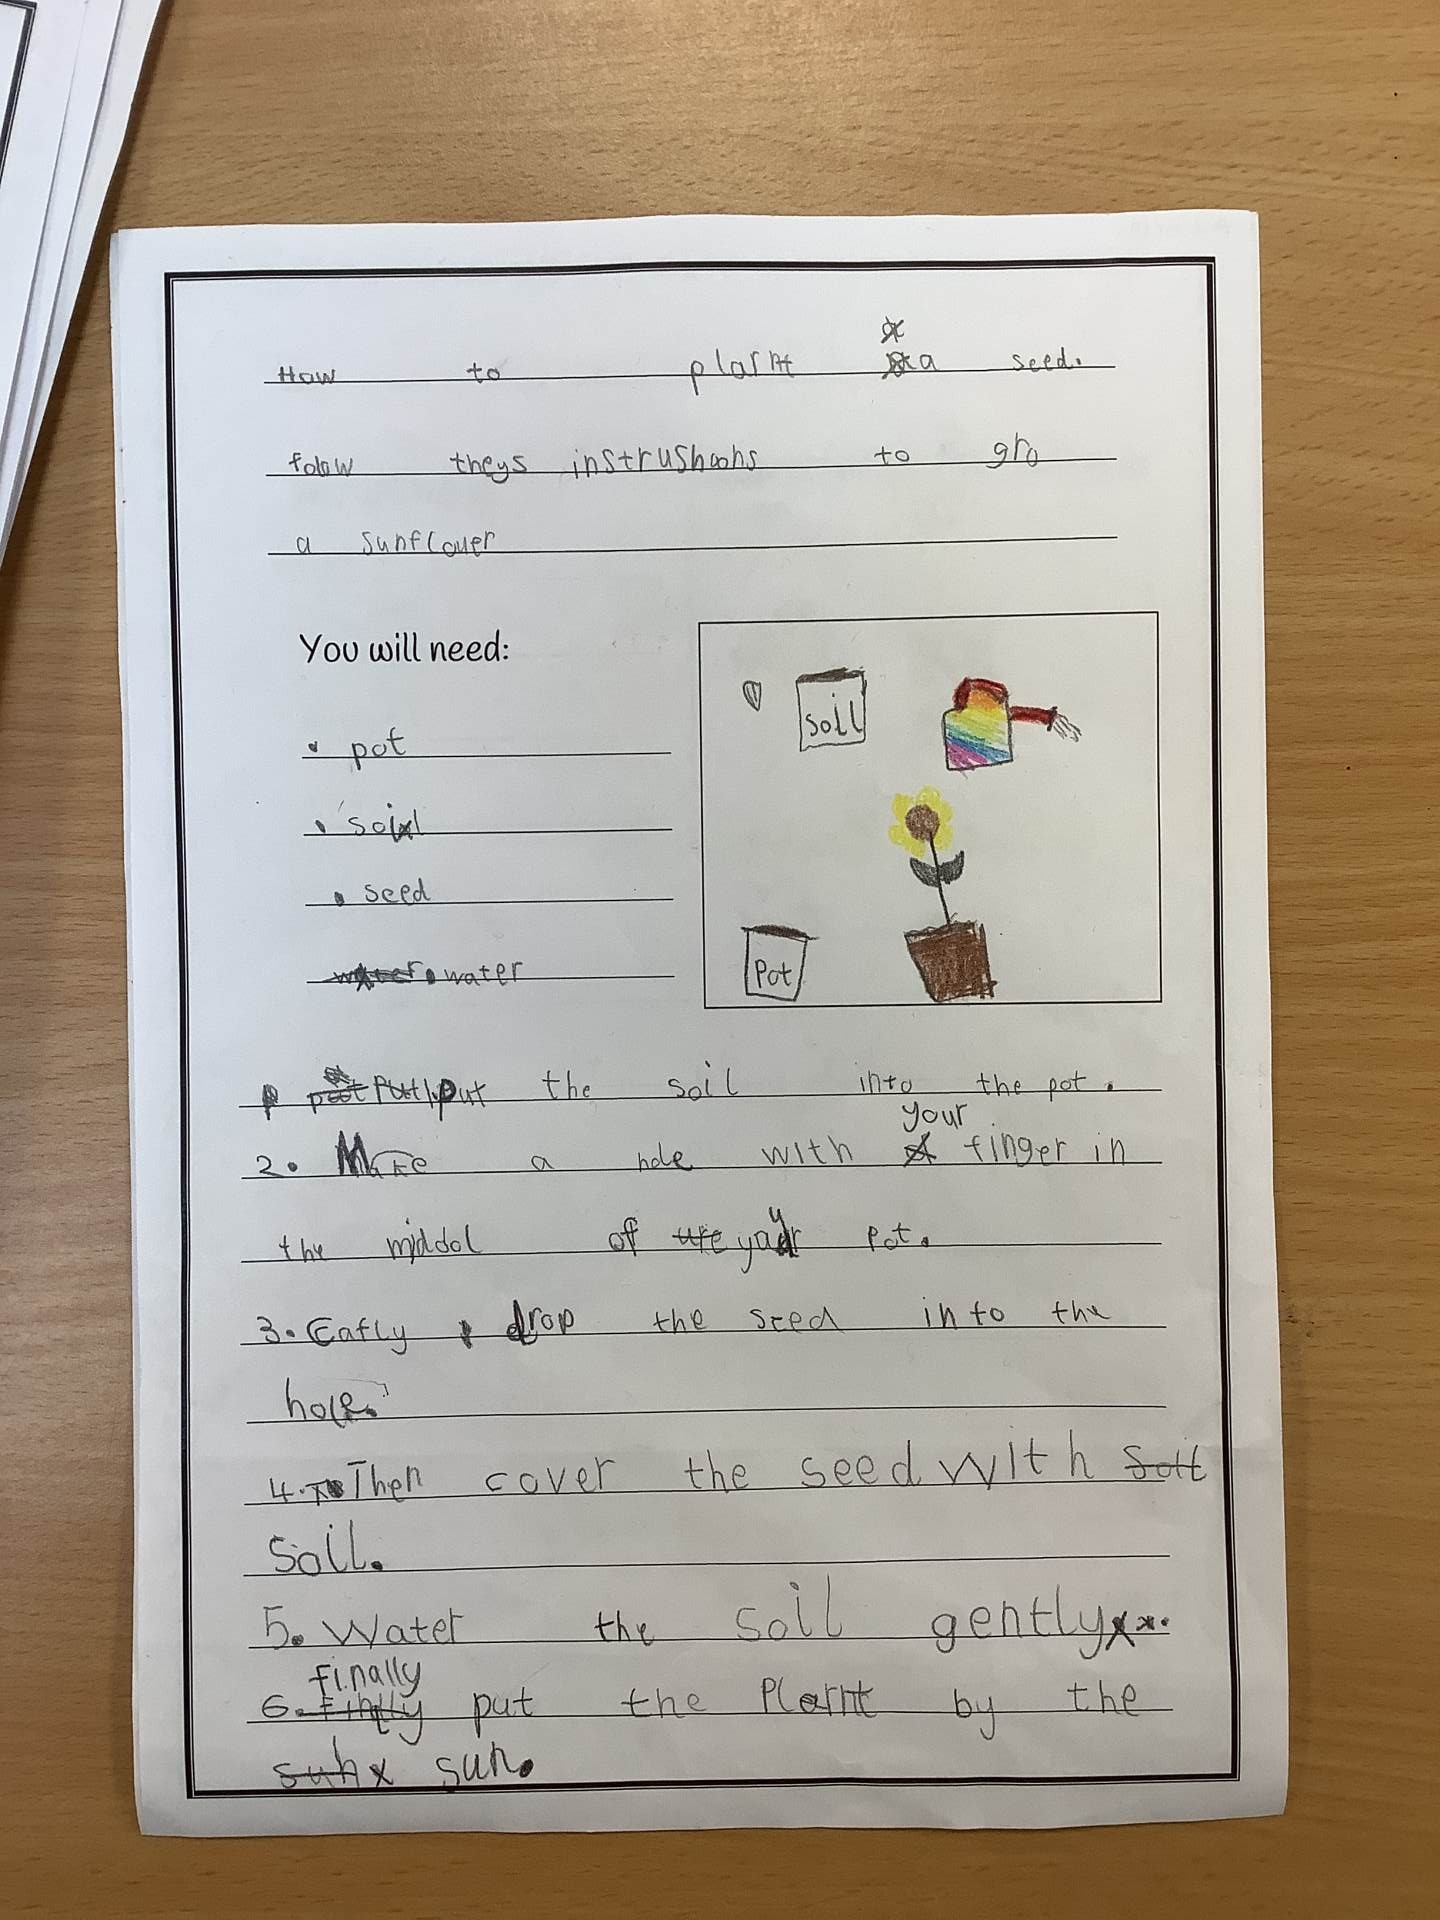 How to plarnt a seed.
folow theys instrushoons to gro
a sunflouer
You will need:
• pot
• soil
• seed
• water
soil
Pot
1. put the soil into the pot.
your
2. Make a hole with finger in
the middol of your pot.
3. Cafly drop the seed into the
hole.
4. Then cover the seed with
soil.
5. Water the soil gently.
finally
6. put the Plarnt by the
sun.